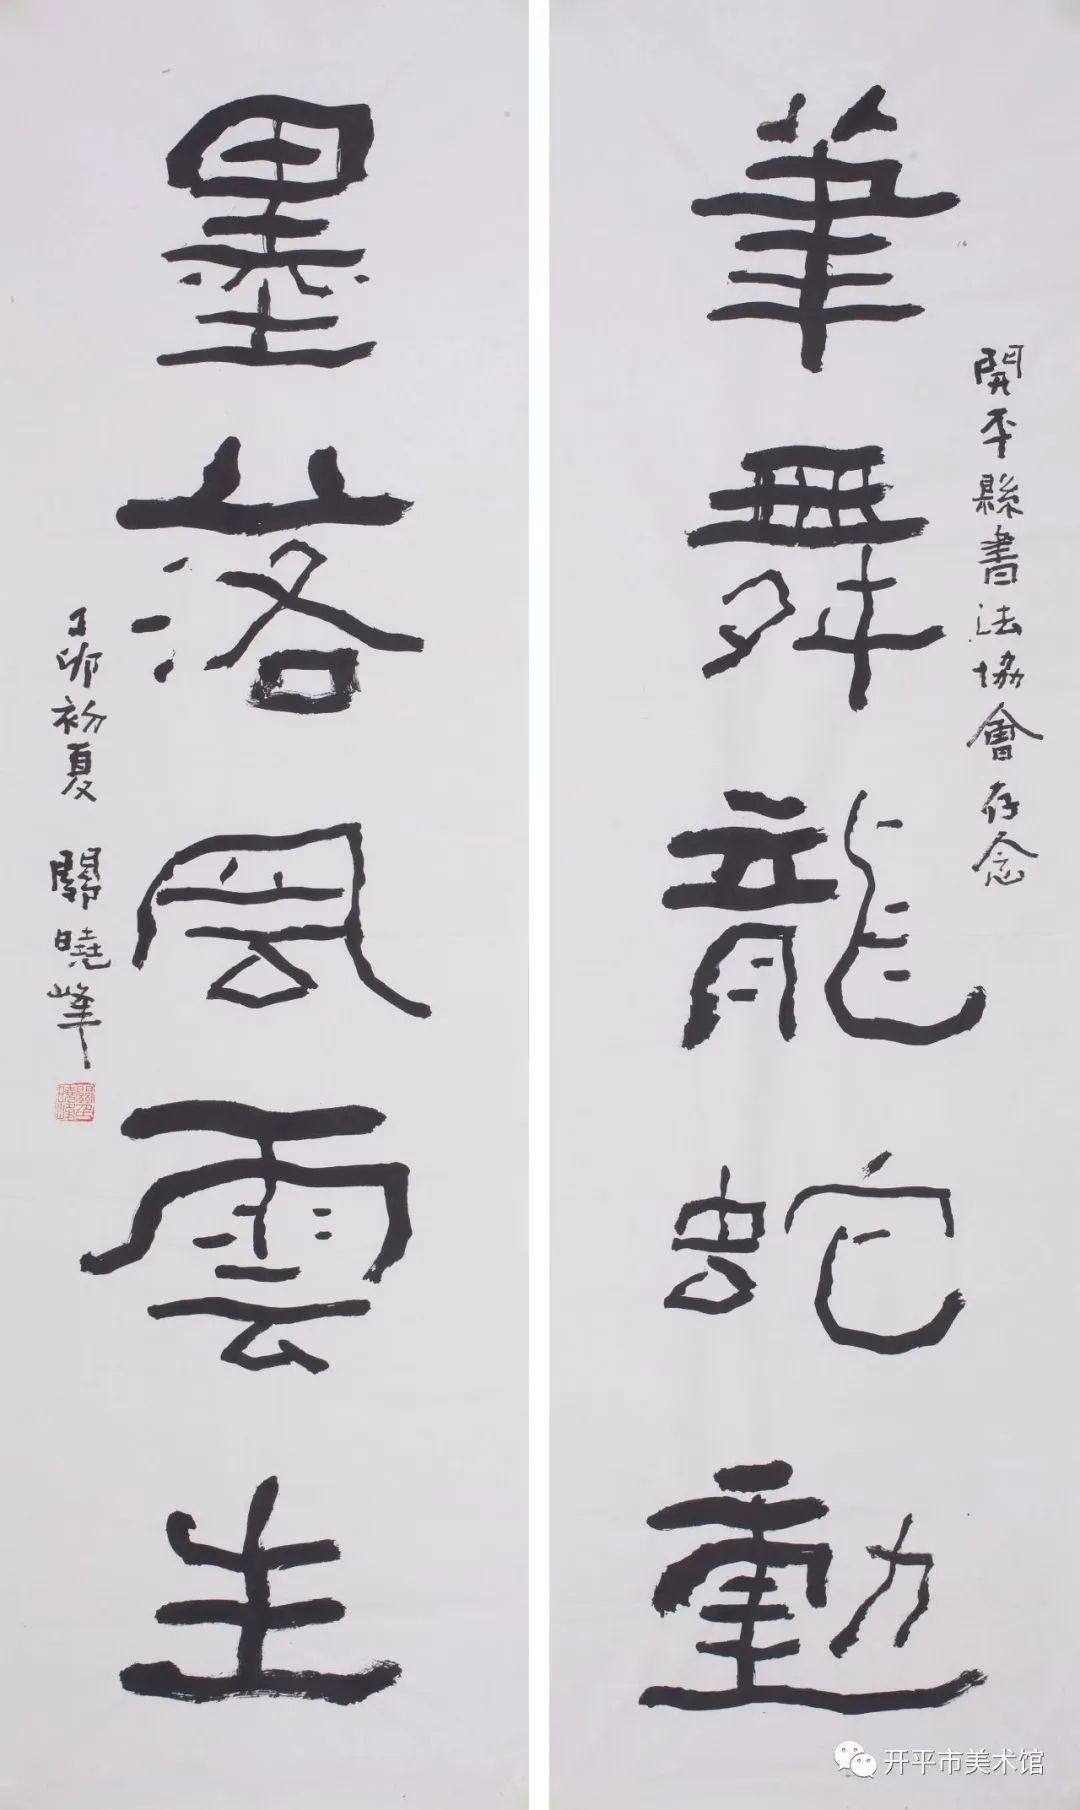 筆舞龍蛇動
開平縣書法協會存念
墨落風雲生
丁卯初夏 關曉峰
開平市美术馆